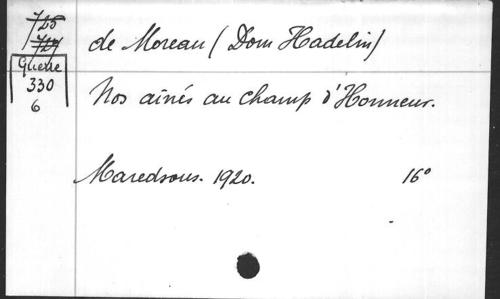 725
de Moreau (Dom Hadelin)
Guerre
330
6
Nos aînés au champ d'Honneur.
Maredsous. 1920. 16°